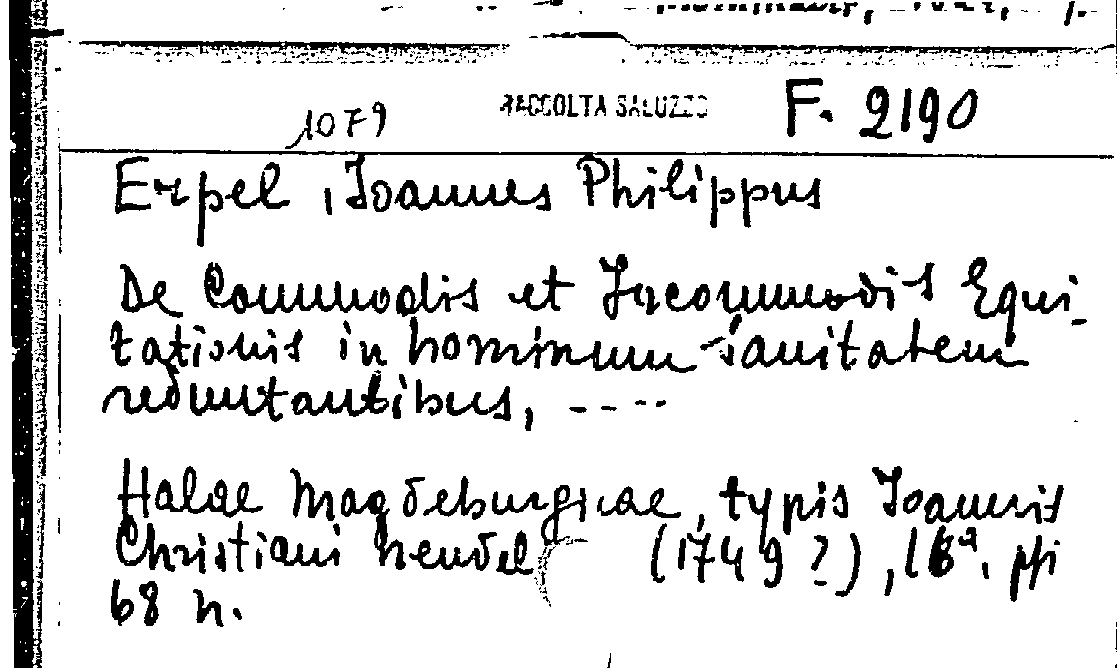 1079 RACCOLTA SALUZZO F. 2190
Erpel, Joannes Philippus
De Commodis et Incommodis Equi-
tationis in hominum sanitatem
reduntantibus, ----
Halae Magdeburgicae, typis Joannis
Christiani hendel (1749?), 16ª. ppi
68 n.